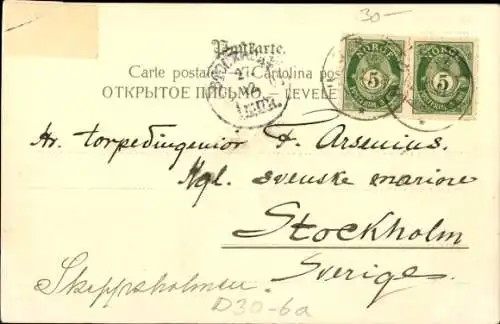 30-
Postkarte.
Carte postale Cartolina pos
ОТКРЫТОЕ ПИСЬМО — LEVELE
NORGE NORGE
5 5
27
Hr. torpedingeniør F. Arsenius.
Kgl. svenske marine
Stockholm
Sverige.
Skeppsholmen.
D30-6a